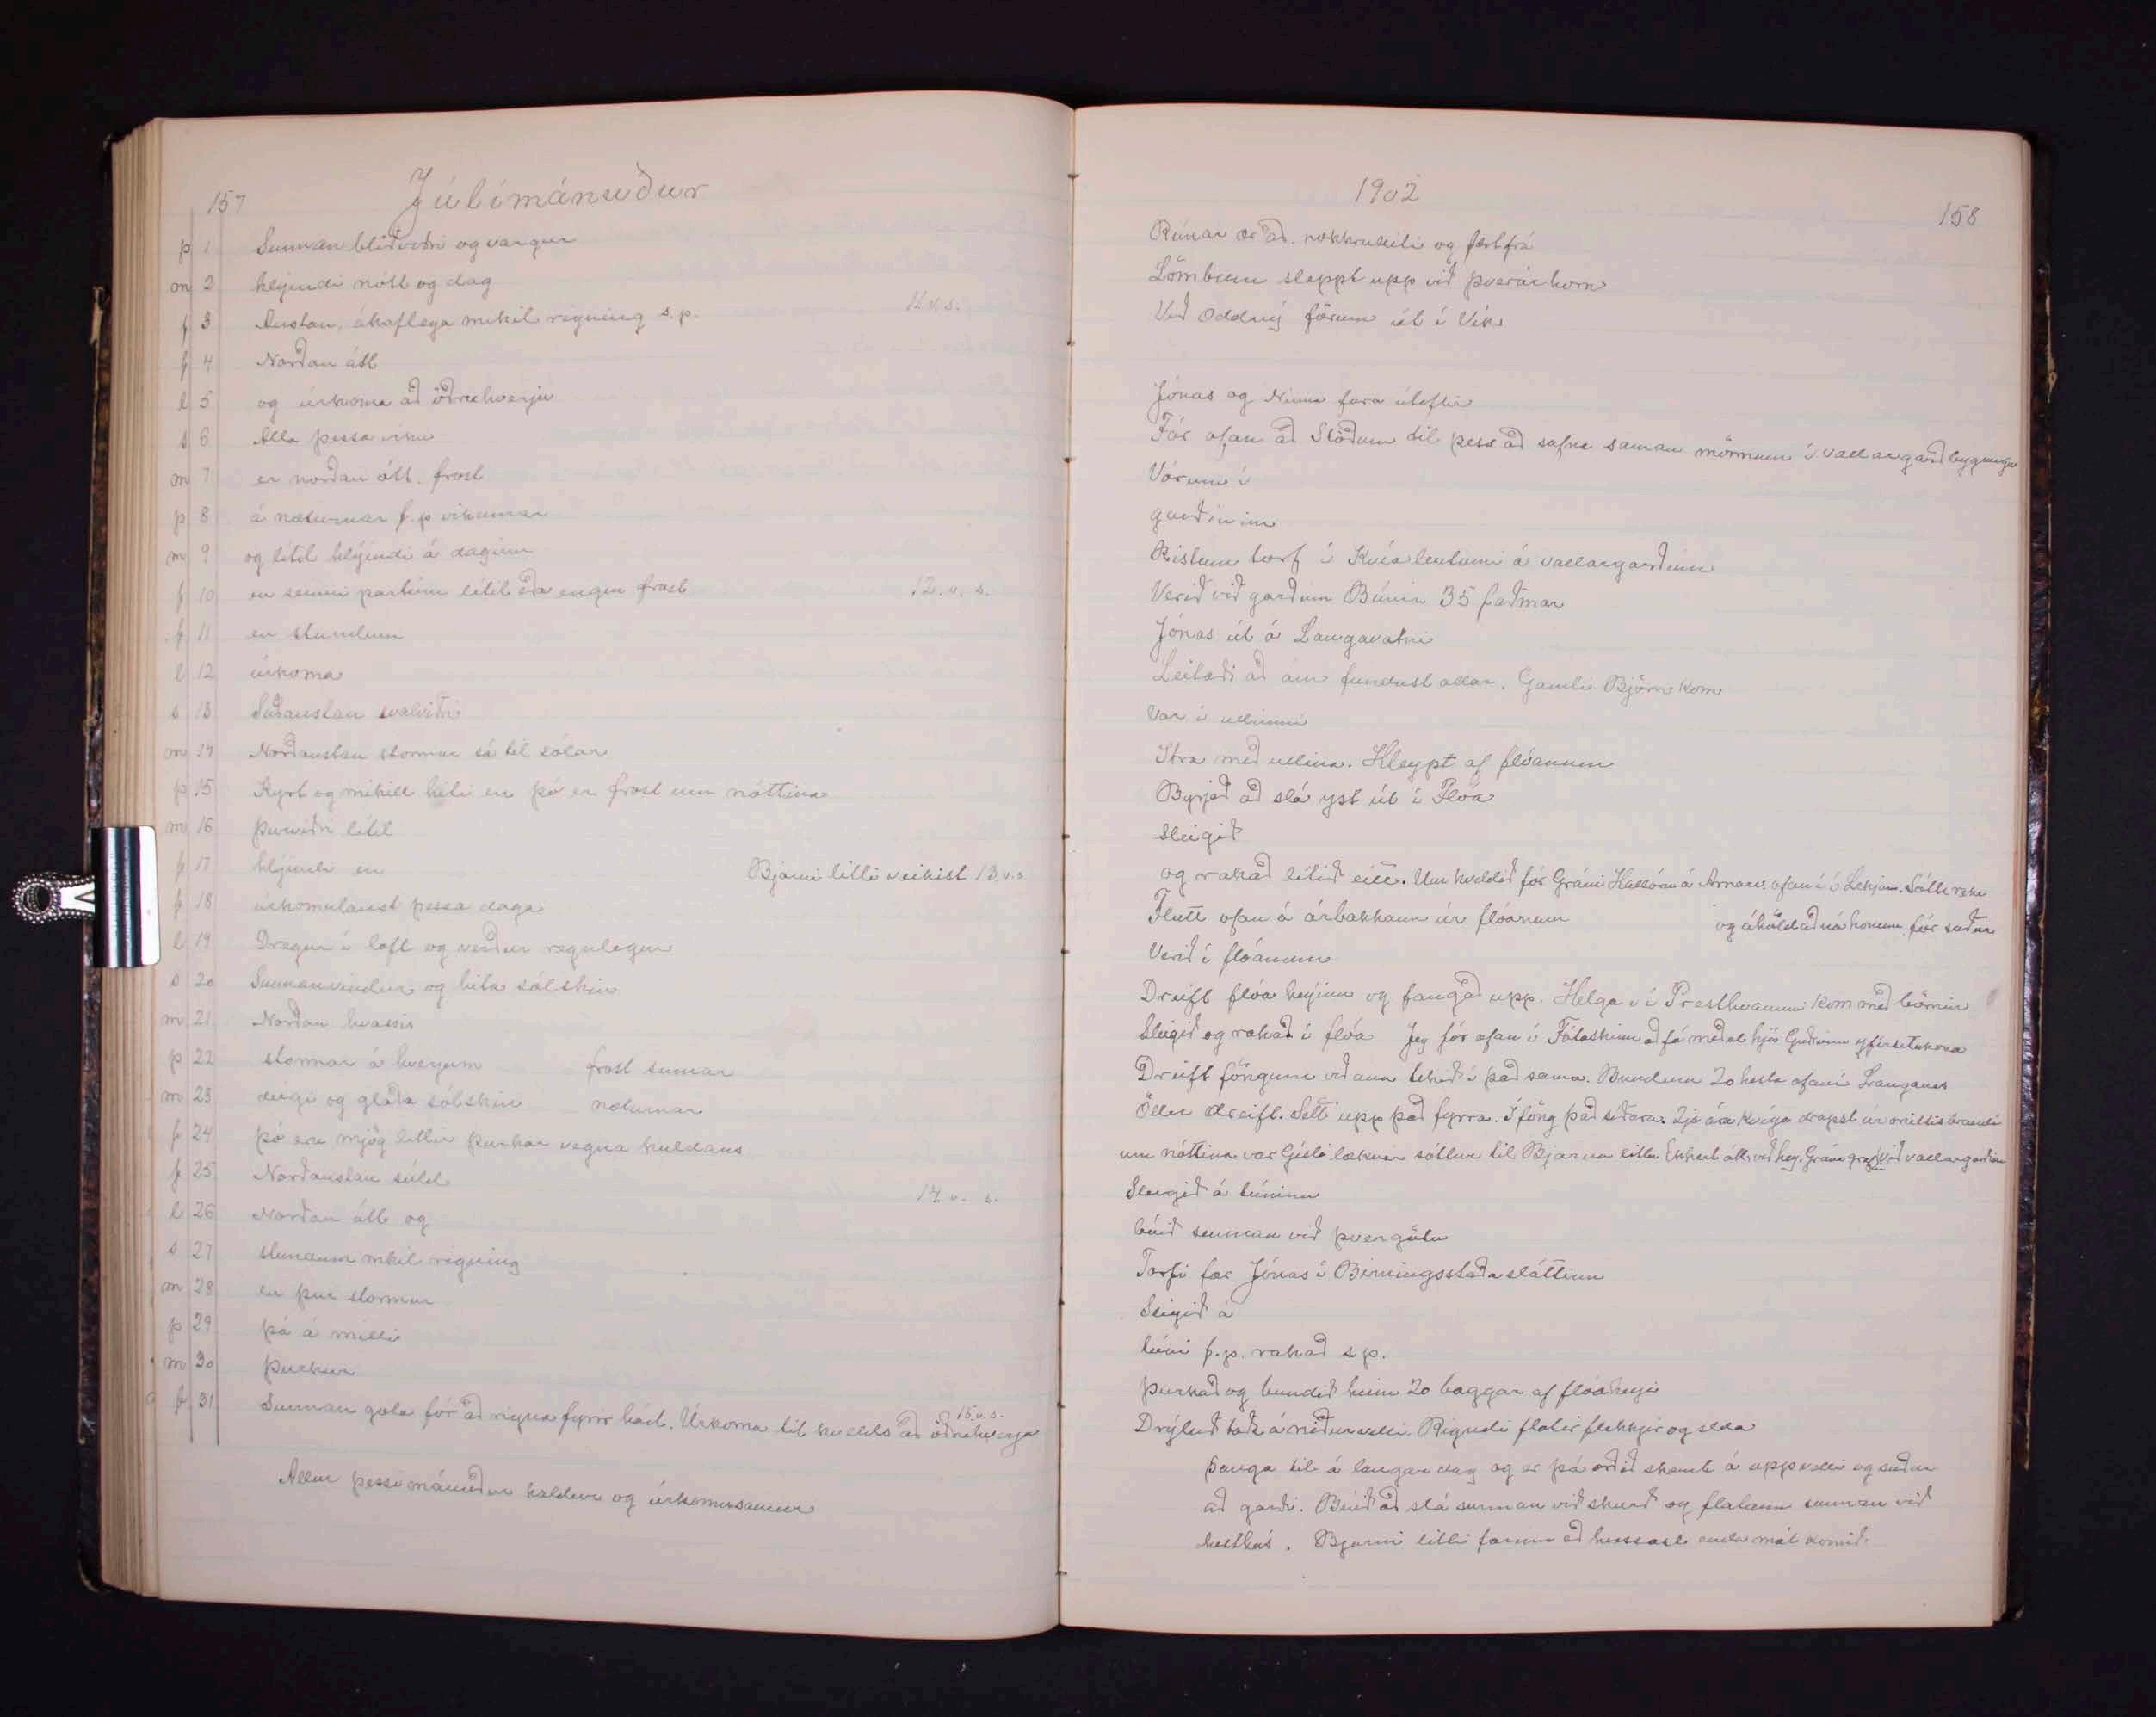 157 Júlímánuður
þ 1 Sunnan blíðviðri og vargur
m 2 hlýindi nótt og dag
f 3 Austan, ákaflega mikil rigning s.p. 11.v.s.
f 4 Norðan átt
l 5 og úrkoma að öðruhverju
s 6 Alla þessa viku
m 7 er norðan átt. frost
þ 8 á næturnar f.p vikunnar
m 9 og lítil hlýindi á daginn
f 10 en seinni partinn lítil eða engin frost 12.v.s.
f 11 en stundum
l 12 úrkoma
s 13 Suðaustan svalviðri
m 14 Norðaustan stormur sá til sólar
þ 15 Kyrt og mikill hiti en þó er frost um nóttina
m 16 þurviðri lítil
f 17 hlýindi en Bjarni litli veikist 13.v.s
f 18 úrkomulaust þessa daga
l 19 Dregur í loft og verður regnlegur
s 20 Sunnanvindur og hita sólskin
m 21 Norðan hvassir
þ 22 stormar á hverjum frost sumar
m 23 degi og glaða sólskin næturnar
f 24 þó eru mjög litlir þurkar vegna kuldans
f 25 Norðaustan súld 14.v.s.
l 26 Norðan átt og
s 27 stundum mikil rigning
m 28 en þur stormur
þ 29 þá á milli
m 30 þurkur
f 31 Sunnan gola fór að rigna fyrir hád. Úrkoma til kvelds að öðruhverju 15.v.s.
Allur þessi mánuður kaldur og úrkomusamur
1902 158
Rúnar ær að nokkruleiti og fært frá
Lömbum sleppt upp við þverárhorn
Við Oddný förum út í Vík
Jónas og Ninna fara úteftir
Fór ofan að Stöðum til þess að safna saman mönnum í vallargarðbygningu
Vórum í
garðinum
Ristum torf í Kvíalautinni á vallargarðinn
Verið við garðinn Búnir 35 faðmar
Jónas út á Laugavatni
Leitaði að ám fundust allar. Gamli Björn kom
Var í ullinni
með ullina. Hleypt af flóanum
Byrjað að slá yst út í Flóa
Sleigið
og rakað lítið eitt. Um kveldið fór Gráni Halldórs á ofan í
Flutt ofan á árbakkann úr flóanum og að ná honum fór suður
Verið í flóanum
Dreift flóa heyinu og fangað upp. Helga í Presthvammi kom með börnin
Sleigið og rakað í flóa Jeg fór ofan í að fá meðal hjá yfirsetukona
Dreift föngum við ána tekið í það sama. Bundum 20 hesta ofaní Langanes
Öllu dreift. Sett upp það fyrra. Í föng það síðara. 2ja ára kvíga drapst úr miltisbrandi
um nóttina var Gísli læknir sóttur til Bjarna litla Ekkert átt við hey. Gráni við vallargarðinn
Sleigið á túninu
búið sunnan við þvergötu
Torfi fær Jónas í Birningsstaða sláttinn
Sleigið á
túni f.p. rakað s p.
þurkað og bundið heim 20 baggar af flóaheyi
Drýlað taða á niðurvelli. Rigndi flatir flekkjir og
þanga til á laugardag og er þá orðið skemt á uppvelli og suður
að garði. Búið að slá sunnan við skurð og flatann sunnan við
hesthús. Bjarni litli farinn að hressast mál komið.